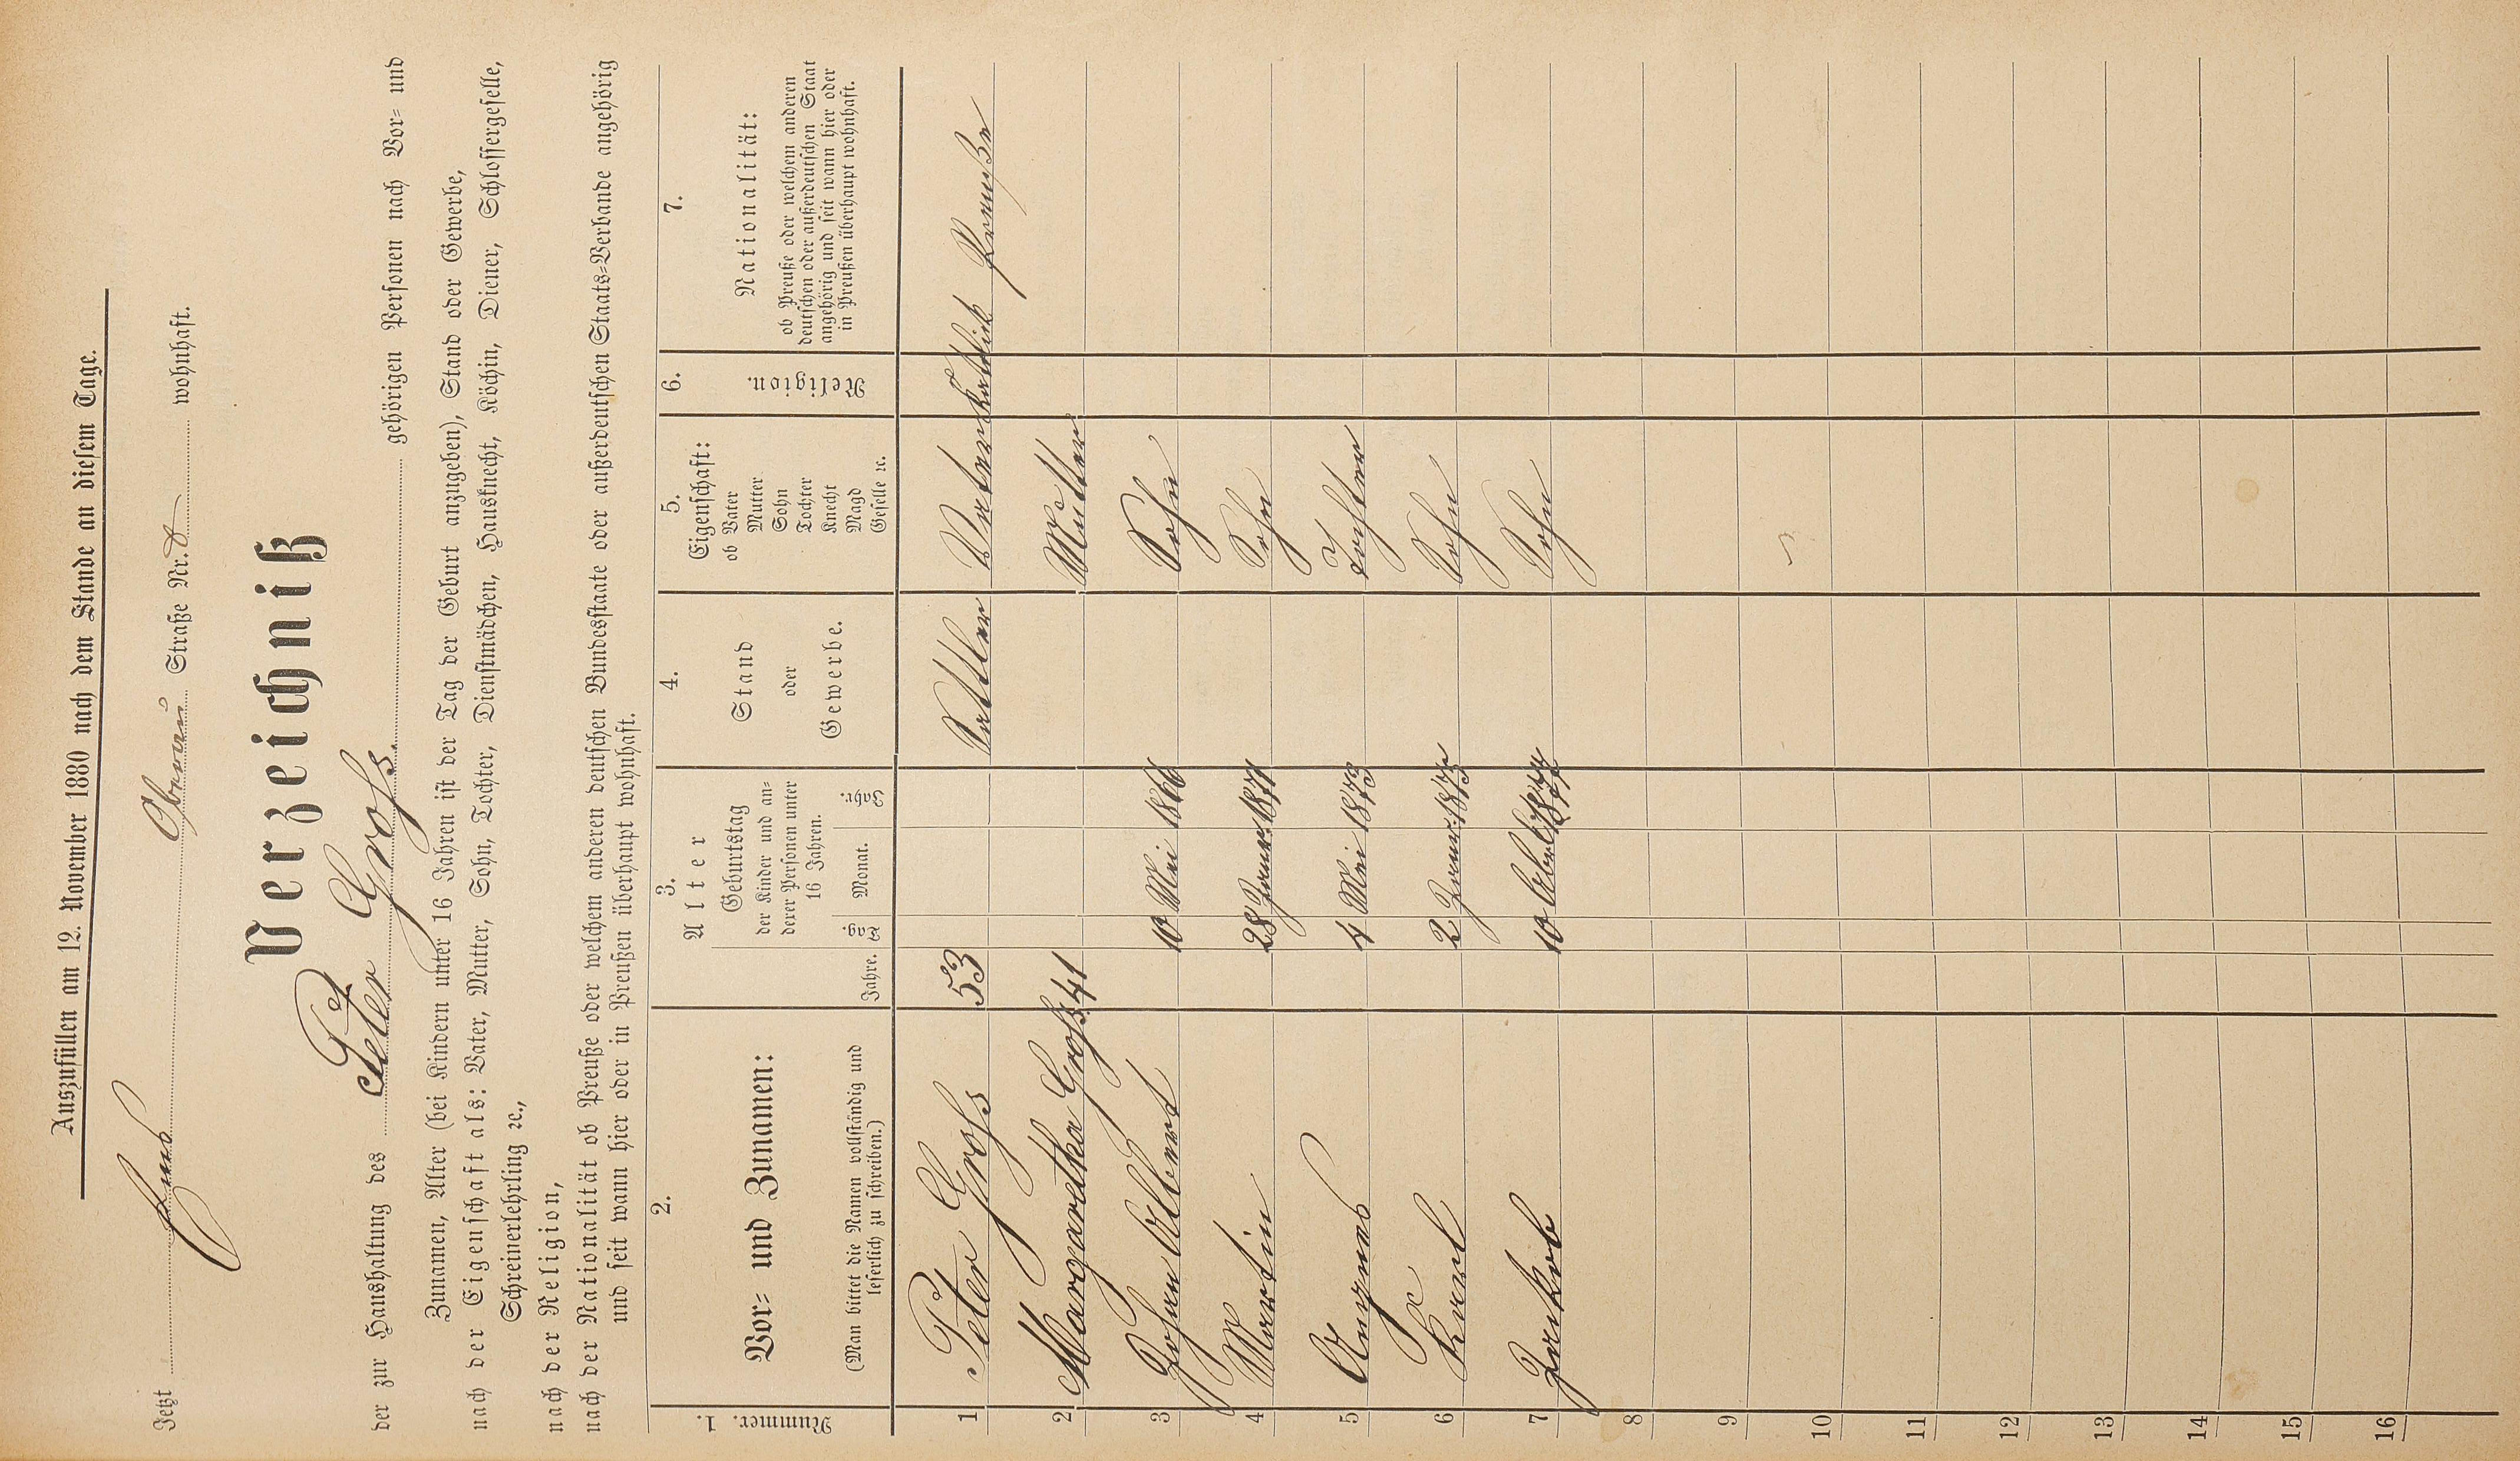 Auszufüllen am 12. November 1880 nach dem Stande an diesem Tage.
Jetzt Ems Oberau Straße Nr. 8 wohnhaft.
Verzeichniß
der zur Haushaltung des Peter Groß gehörigen Personen nach Vor- und
Zunamen, Alter (bei Kindern unter 16 Jahren ist der Tag der Geburt anzugeben), Stand oder Gewerbe,
nach der Eigenschaft als: Vater, Mutter, Sohn, Tochter, Dienstmädchen, Hausknecht, Köchin, Diener, Schlossergeselle,
Schreinerlehrling ꝛc.,
nach der Religion,
nach der Nationalität ob Preuße oder welchem anderen deutschen Bundesstaate oder außerdeutschen Staats-Verbande angehörig
und seit wann hier oder in Preußen überhaupt wohnhaft.
1. Nummer.
2. Vor- und Zunamen:
(Man bittet die Namen vollständig und
leserlich zu schreiben.)
3. Alter
Jahre.
Geburtstag
der Kinder und an-
derer Personen unter
16 Jahren.
Tag. Monat. Jahr.
4. Stand
oder
Gewerbe.
5. Eigenschaft:
ob Vater
Mutter
Sohn
Tochter
Knecht
Magd
Geselle ꝛc.
6. Religion.
7. Nationalität:
ob Preuße oder welchem anderen
deutschen oder außerdeutschen Staat
angehörig und seit wann hier oder
in Preußen überhaupt wohnhaft.
1 Peter Groß 53 Sattler Vater katholisch Preuße
2 Margaretha Groß 41 Mutter
3 Johan Albert 10 Mai 1866 Sohn
4 Martin 28 1871 Sohn
5 4 Mai 1873 Tochter
6 Karl 2 1875 Sohn
7 Jakob 10 1877 Sohn
8
9
10
11
12
13
14
15
16